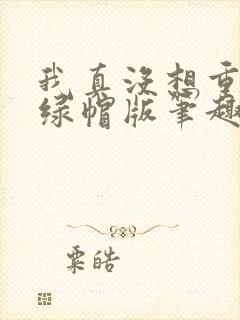 我真没想重
绿帽版笔趣
粟皓